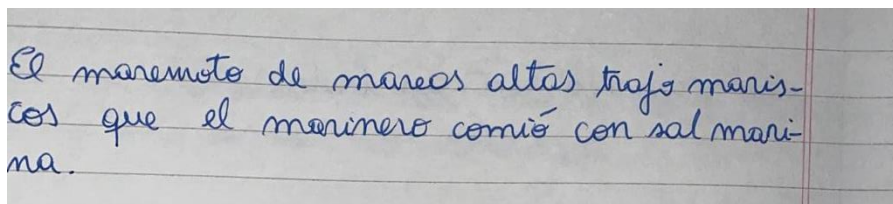 El maremoto de mareas altas trajo maris-
cos que el marinero comió con sal mari-
na.